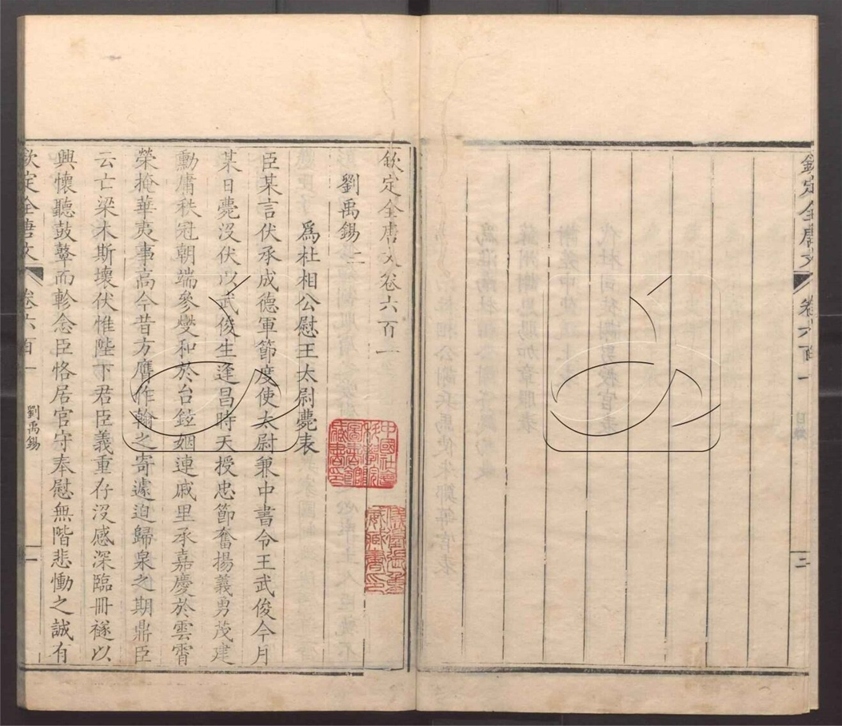 欽定全唐文
卷六百一
三
欽定全唐文卷六百一
劉禹錫二
爲杜相公慰王太尉薨表
臣某言伏承成德軍節度使太尉兼中書令王武俊今月
某日薨没伏以武俊生逢昌時天授忠節奮揚義勇茂建
勳庸秩冠朝端參燮和於台鉉姻連戚里承嘉慶於雲霄
榮掩華夷事高今昔方膺作翰之寄遽迫歸泉之期鼎臣
云亡梁木斯壞伏惟陛下君臣義重存没感深臨冊襚以
興懷聽鼓鼙而軫念臣恪居官守奉慰無階悲慟之誠有
欽定全唐文
卷六百一
劉禹錫
一